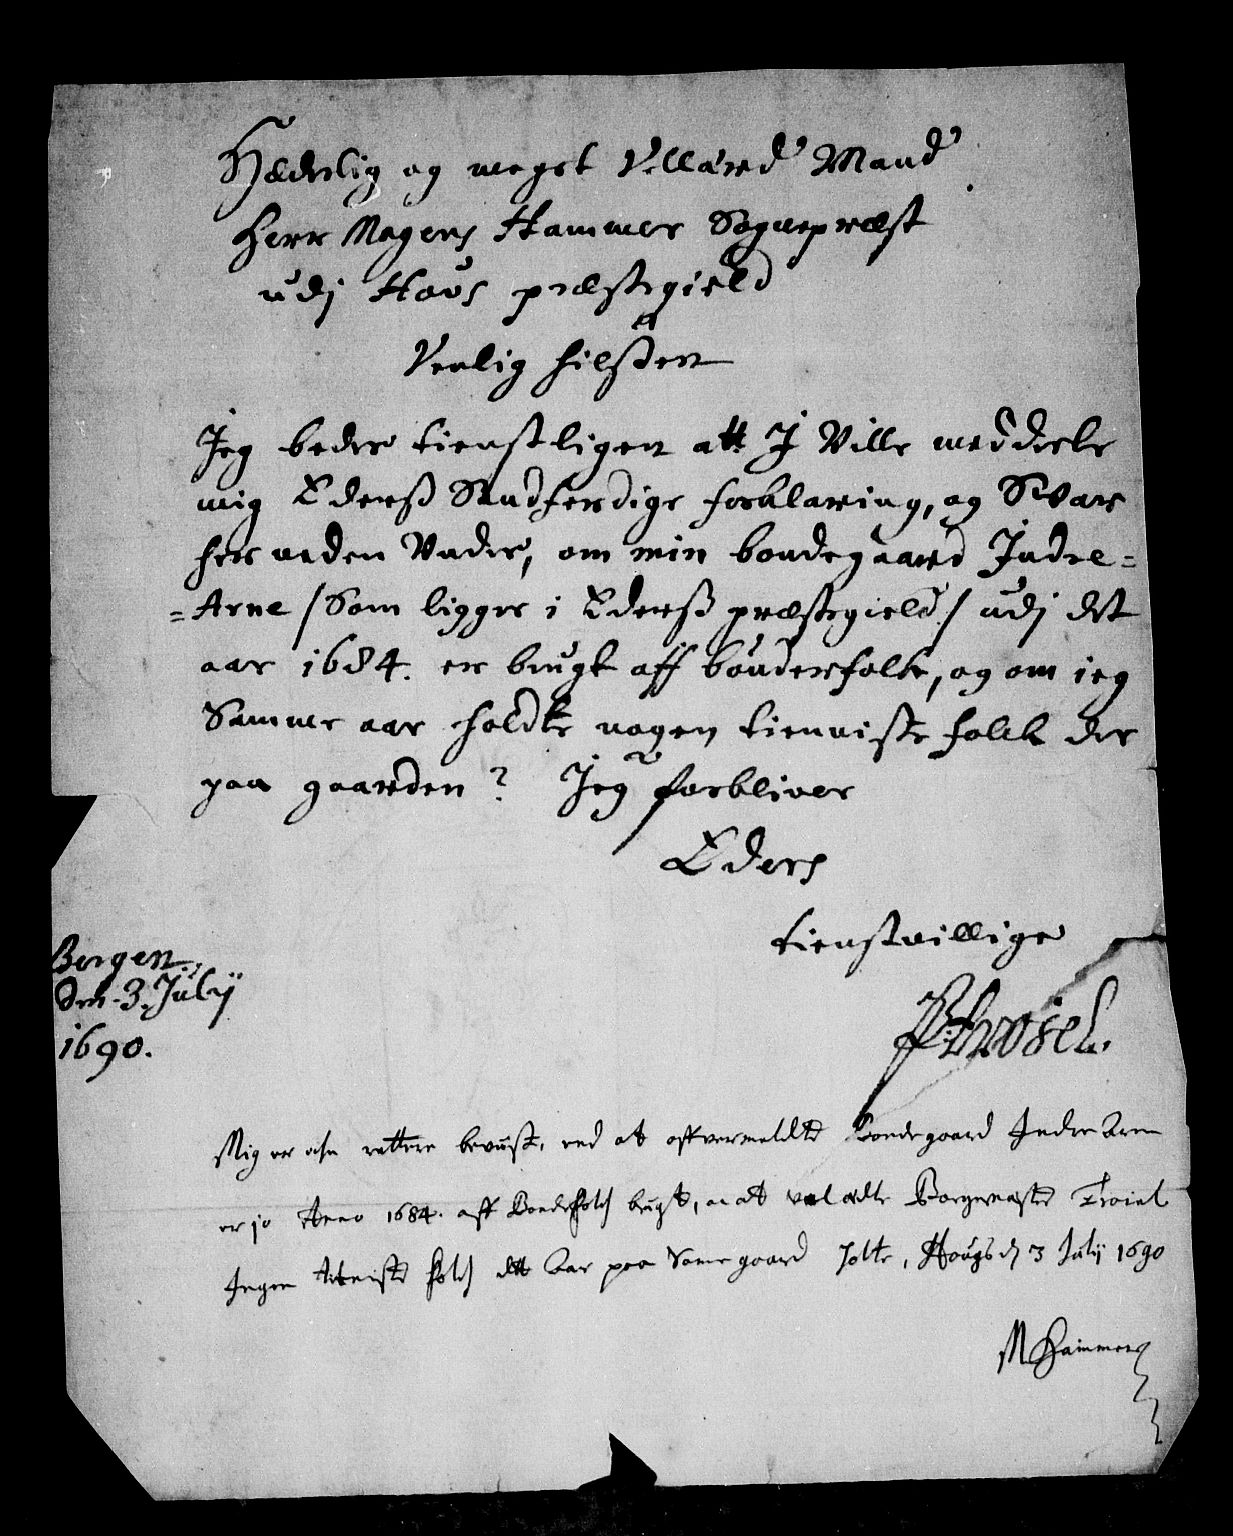 Hæderlig og meget Vellærd Mand
Herr Mogens Hammer Sognepræst
udj Hous præstegield
Venlig hilssen
Jeg beder tienstligen att J Ville meddeele
mig Ederss Sandferdige forklaring, og Svar
her neden Under, om min bondegaard Indre=
=Arne /Som ligger i Ederss præstegield/ udj det
aar 1684. er brugt aff bønderfolk, og om jeg
Samme aar holdte nogen tienniste folck der
paa gaarden? Jeg forbliver
Eders
tienstvillige
Bergen
den 3. Julij
1690.
Mig er icke rettere bevust, end at offvermeldte Bondegaard Indre Arne
er jo Anno 1684. aff Bondefolch brugt, oc at vel ædle Borgemester Troiel
Ingen tieniste folch dett Aar paa Samme gaard holte, Hougs d 3 Julij 1690
M Hammer